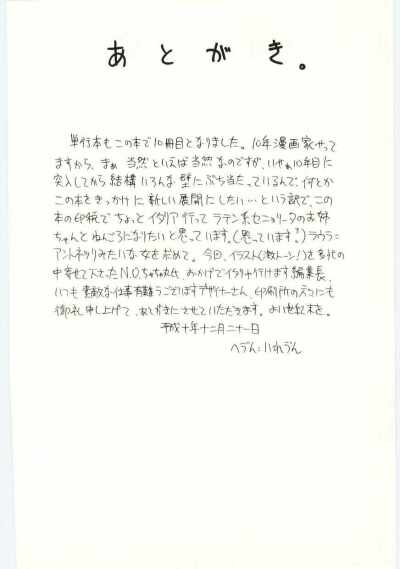 あとがき。
単行本もこの本で10冊目となりました。10年漫画家やって
ますから、まぁ当然といえば当然なのですが、いやぁ10年目に
突入してから結構いろんな壁にぶち当たっているんで、何とか
この本をきっかけに新しい展開にしたい…という訳で、この
本の印税でちょっとイタリア行ってラテン系セニョリータのお姉
ちゃんとねんごろになりたいと思っています。(思っています?)ラウラ=
アントネッリみたいな女を求めて。今回、イラスト(教トーン!)を多忙の
中寄せて下さったN.O.ちゃん氏、おかげでイタリア行けます編集長、
いつも素敵な仕事有難うございますデザイナーさん、印刷所の方々にも
御礼申し上げて、あとがきにさせていただきます。よい世紀末を。
平成十年十二月二十一日